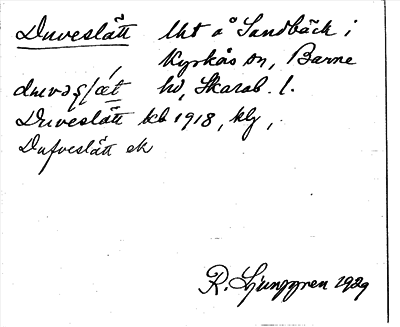 Duveslätt lht å Sandbäck i
Kyrkås sn, Barne
hd, Skarab. l.
Duveslätt kb 1918, klg,
Dufveslätt ek
R. Ljunggren 1929